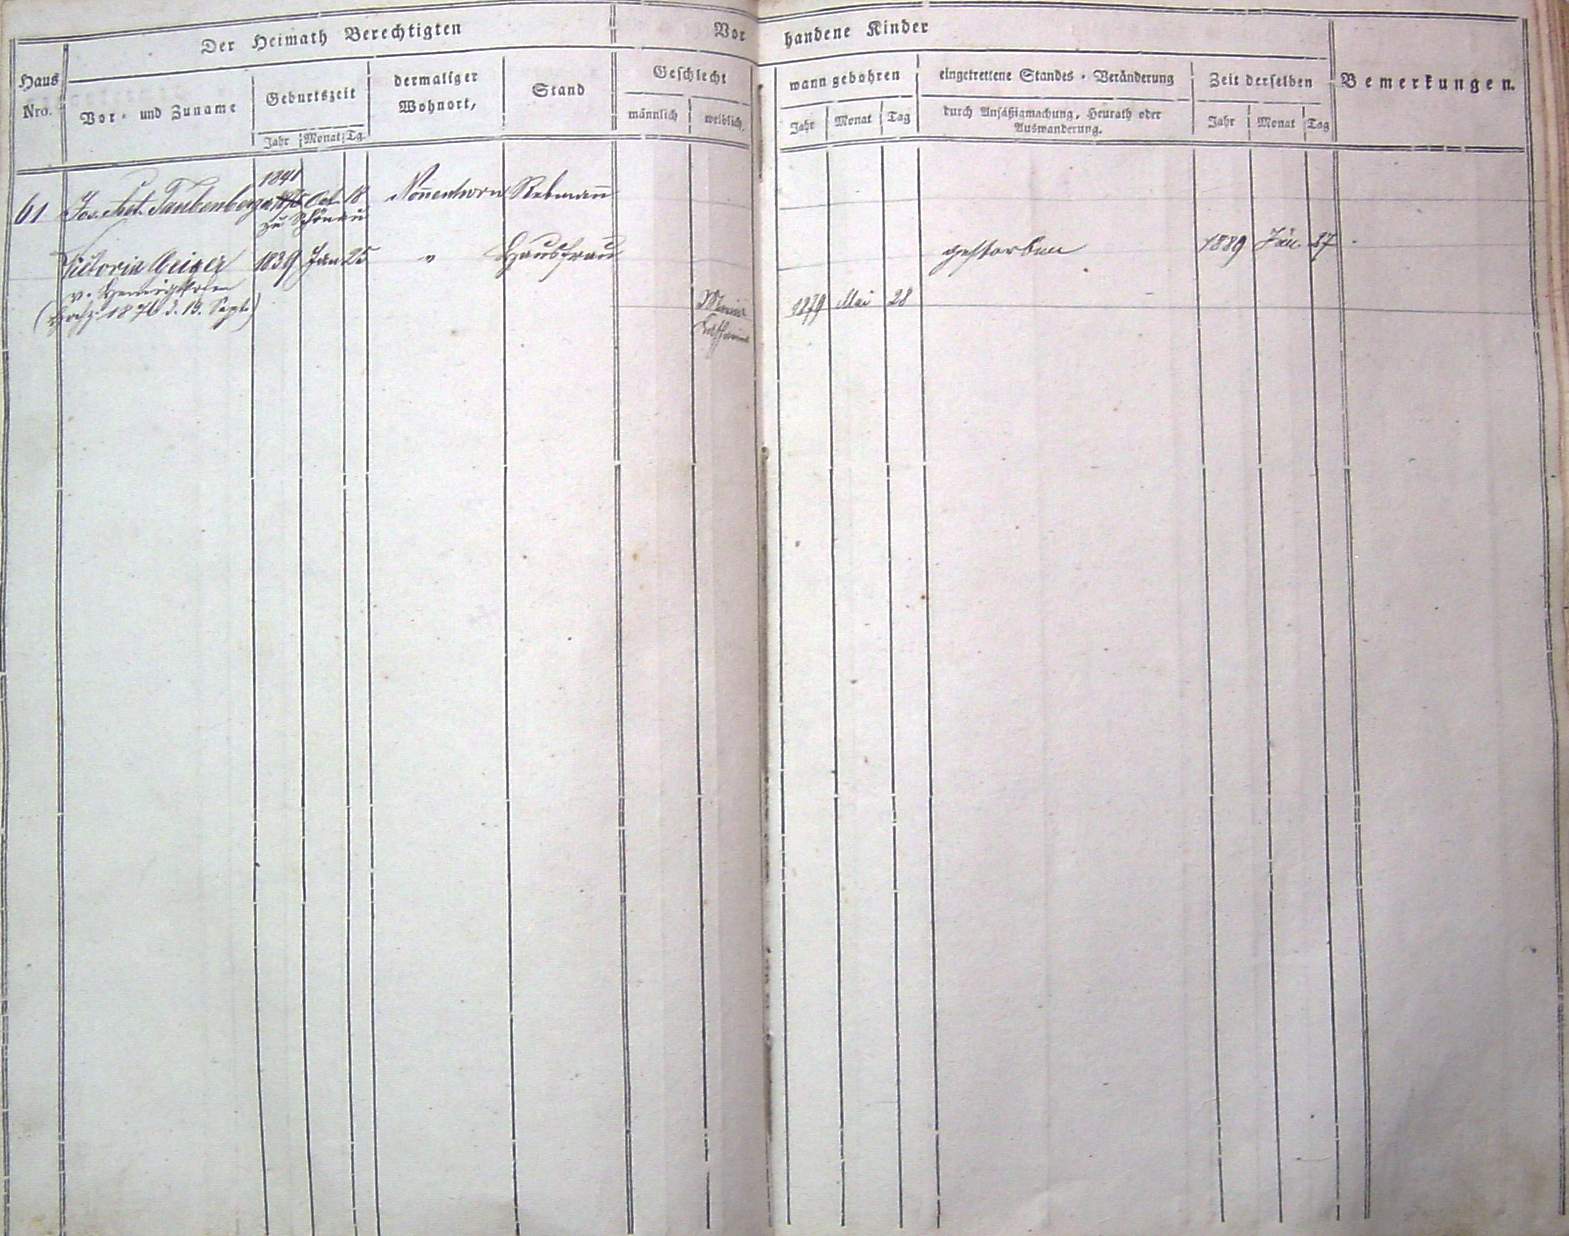 Der Heimath Berechtigten
Vorhandene Kinder
Haus Nro.
Vor- und Zuname
Geburtszeit
Jahr Monat Tg.
dermaliger Wohnort,
Stand
Geschlecht
männlich weiblich
wann gebohren
Jahr Monat Tag
eingetrettene Standes-Veränderung
durch Ansäßigmachung, Heurath oder
Auswanderung.
Zeit derselben
Jahr Monat Tag
Bemerkungen.
1841
61 Jos. Ant. Taubenberger Oct. 18 Nonnenhorn Rebmann
zu Schönau
Victoria Geiger 1839 Jan 25 " Hausfrau gestorben 1889 Jän. 27
v. Hemigkofen
(Hochz. 1876 d. 19. Sept.)
Maria 1879 Mai 28